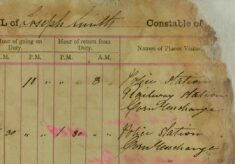 L of Joseph Smith Constable of
Hour of going on Duty. Hour of return from Duty. Names of Places Visited
A.M. P.M. P.M. A.M.
18 3 Police Station
Railway Station
Corn Exchange
30 1 30 Police Station
Corn Exchange